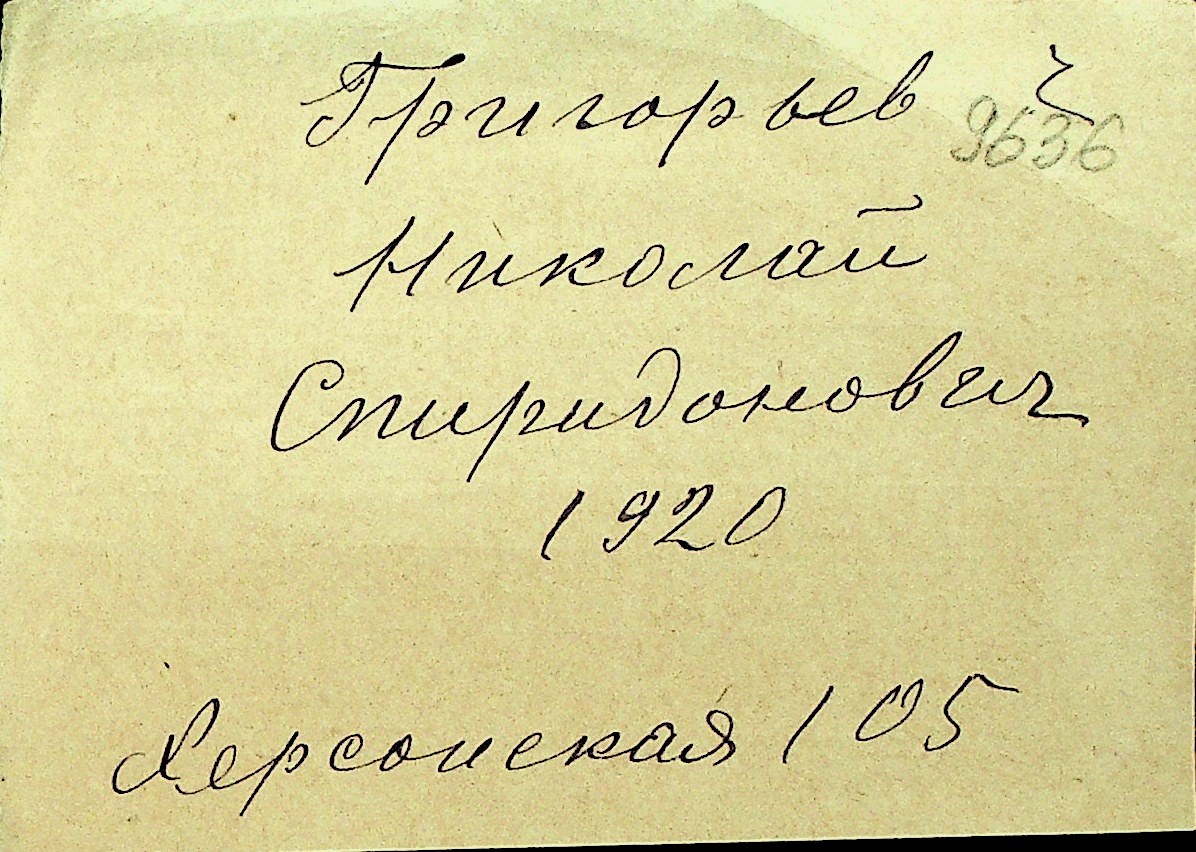 Григорьев
9636
Николай
Спиридонович
1920
Херсонская 105